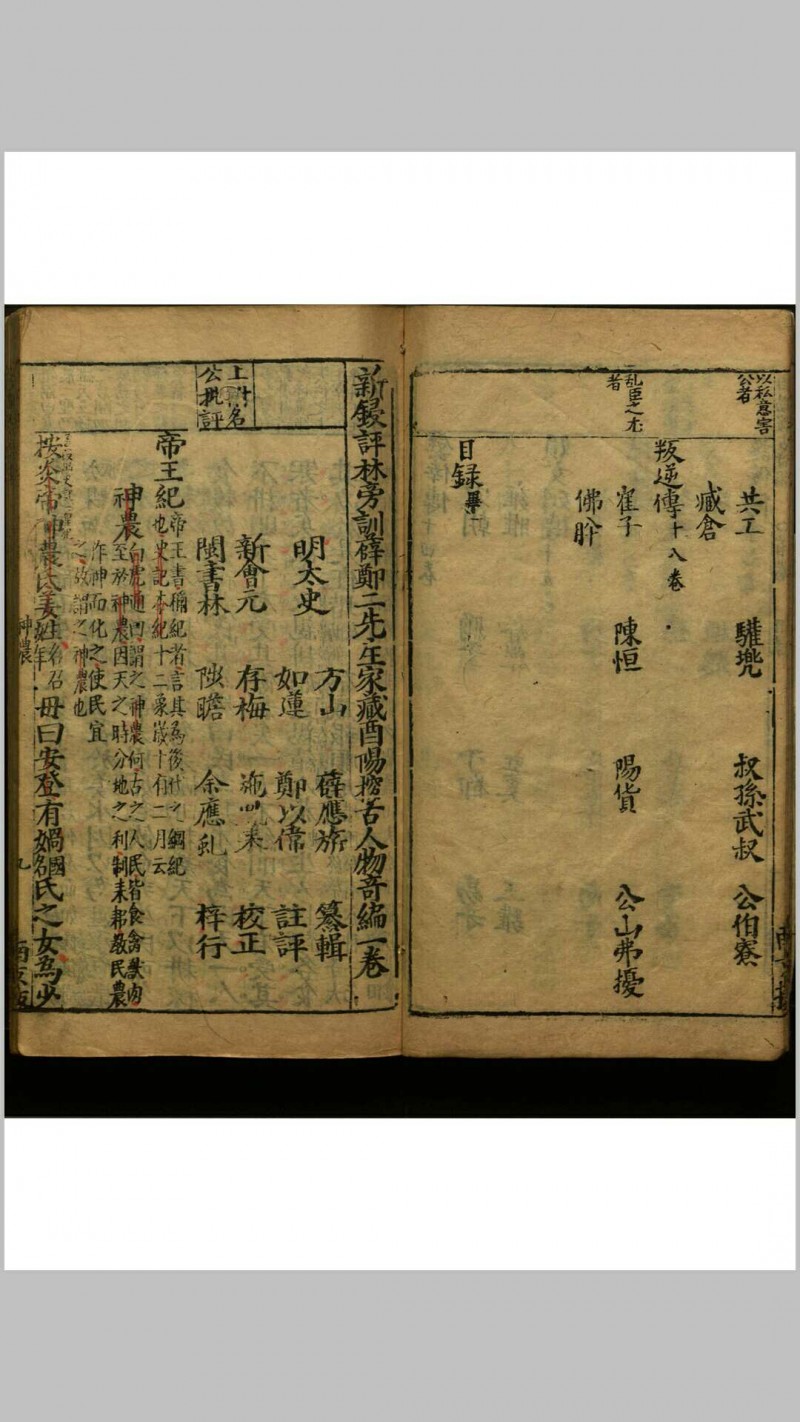 以私意害
公者
共工 驩兠 叔孫武叔 公伯寮
臧倉
叛逆傳十八卷
亂臣之尤
者
崔子 陳恒 陽貨 公山弗擾
佛肸
目録畢
新鋟評林旁訓薛鄭二先生家藏酉陽搜古人物奇編一卷
明太史 方山 薛應旂 纂輯
如蓮 鄭以偉 註評
新會元 存梅 施 校正
閩書林 瞻 余應虬 梓行
上附名
公批評
帝王紀
帝王書稱紀者言其為後代之綱紀
也史記本紀十二象嵗十有二月云
神農
白虎通曰謂之神農何古之人民皆食禽獸肉
至於神農因天之時分地之利制耒耜教民農
作神而化之使民宜
之故謂之神農也
按炎帝神農氏姜姓 母曰安登有媧國名氏之女為少
神農
九